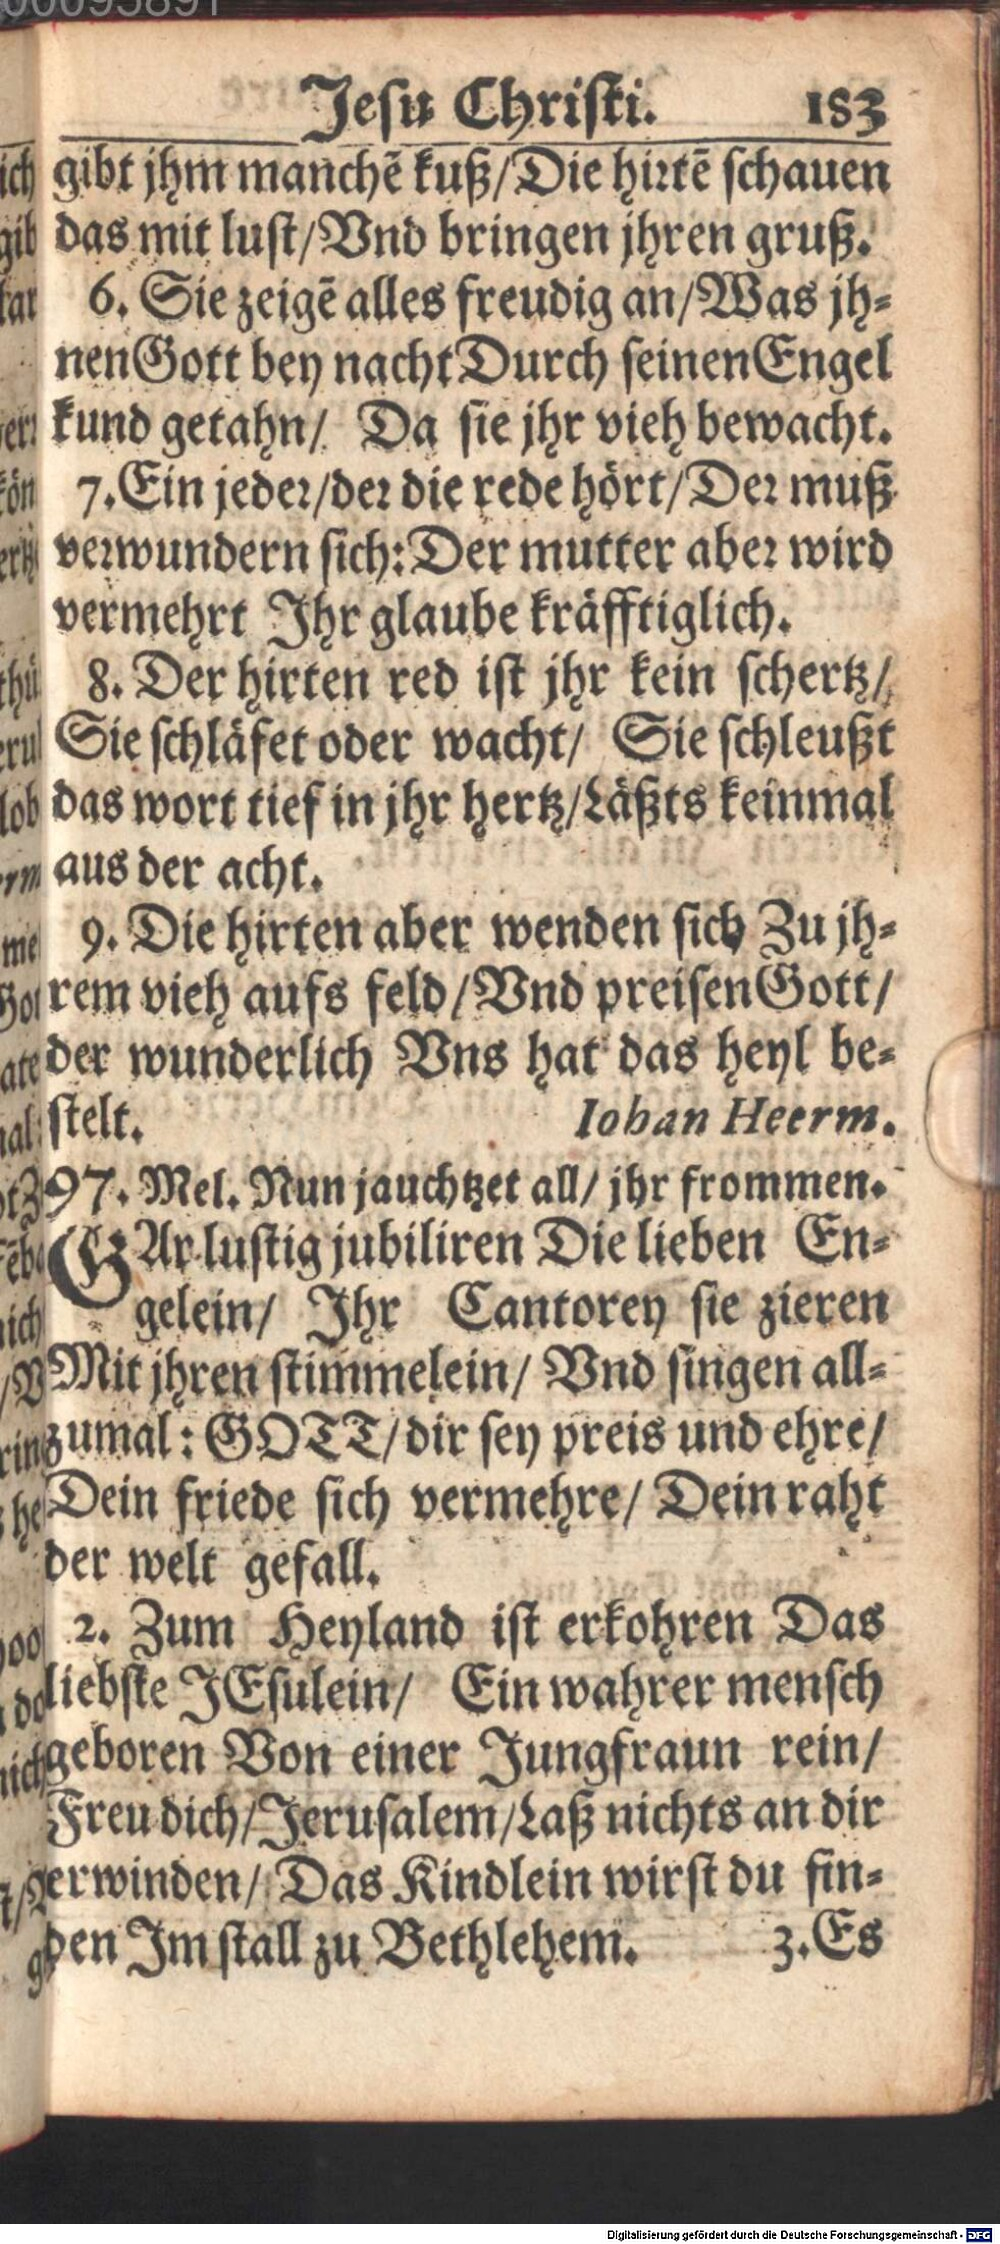 Jesu Christi. 183
gibt jhm manchē kuß/Die hirtē schauen
das mit lust/Vnd bringen jhren gruß.
6. Sie zeigē alles freudig an/Was jh-
nen Gott bey nacht Durch seinen Engel
kund getahn/ Da sie jhr vieh bewacht.
7. Ein jeder/der die rede hört/Der muß
verwundern sich: Der mutter aber wird
vermehrt Ihr glaube kräfftiglich.
8. Der hirten red ist jhr kein schertz/
Sie schläfet oder wacht/ Sie schleußt
das wort tief in jhr hertz/Läßts keinmal
aus der acht.
9. Die hirten aber wenden sich Zu jh-
rem vieh aufs feld/Vnd preisen Gott/
der wunderlich Vns hat das heyl be-
stelt. Iohan Heerm.
97. Mel. Nun jauchtzet all/ jhr frommen.
GAr lustig jubiliren Die lieben En-
gelein/ Ihr Cantorey sie zieren
Mit jhren stimmelein/ Vnd singen all-
zumal: GOTT/dir sey preis und ehre/
Dein friede sich vermehre/ Dein raht
der welt gefall.
2. Zum Heyland ist erkohren Das
liebste JEsulein/ Ein wahrer mensch
geboren Von einer Jungfraun rein/
Freu dich/Jerusalem/Laß nichts an dir
erwinden/ Das Kindlein wirst du fin-
den Im stall zu Bethlehem. 3. Es
Digitalisierung gefördert durch die Deutsche Forschungsgemeinschaft - DFG